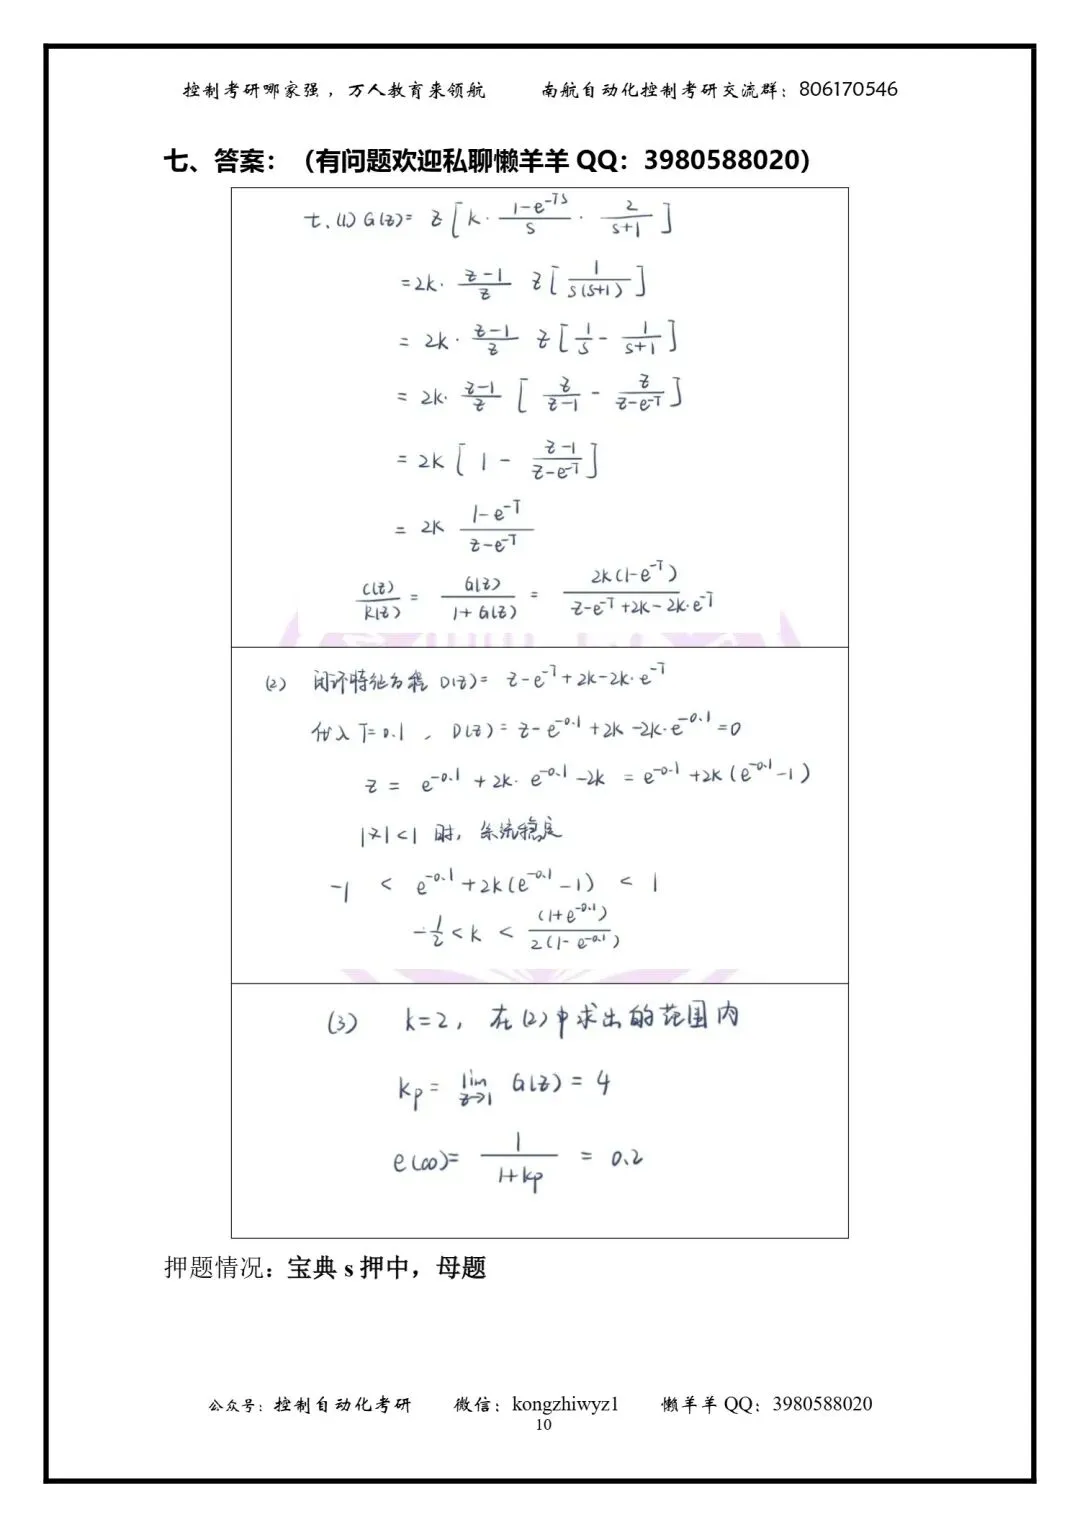 控制考研哪家强，万人教育来领航 南航自动化控制考研交流群：806170546
七、答案：（有问题欢迎私聊懒羊羊 QQ：3980588020）
七.(1) G(z)= z[k·(1-e^-TS)/S · 2/(s+1)]
=2k· (z-1)/z z[1/(s(s+1))]
= 2k· (z-1)/z z[1/s - 1/(s+1)]
= 2k· (z-1)/z [z/(z-1) - z/(z-e^-T)]
= 2k[1 - (z-1)/(z-e^-T)]
= 2k (1-e^-T)/(z-e^-T)
C(z)/R(z) = G(z)/(1+G(z)) = 2k(1-e^-T)/(z-e^-T+2k-2k·e^-T)
(2) 闭环特征方程 D(z)= z-e^-T+2k-2k·e^-T
代入 T=0.1, D(z)= z-e^-0.1+2k-2k·e^-0.1=0
z = e^-0.1+2k·e^-0.1-2k = e^-0.1+2k(e^-0.1-1)
|z|<1 时, 系统稳定
-1 < e^-0.1+2k(e^-0.1-1) < 1
-1/2<k< (1+e^-0.1)/(2(1-e^-0.1))
(3) k=2, 在(2)中求出的范围内
kp= lim z→1 G(z)=4
e(∞)= 1/(1+kp) = 0.2
押题情况：宝典 s 押中，母题
公众号：控制自动化考研 微信：kongzhiwyz1 懒羊羊 QQ：3980588020
10